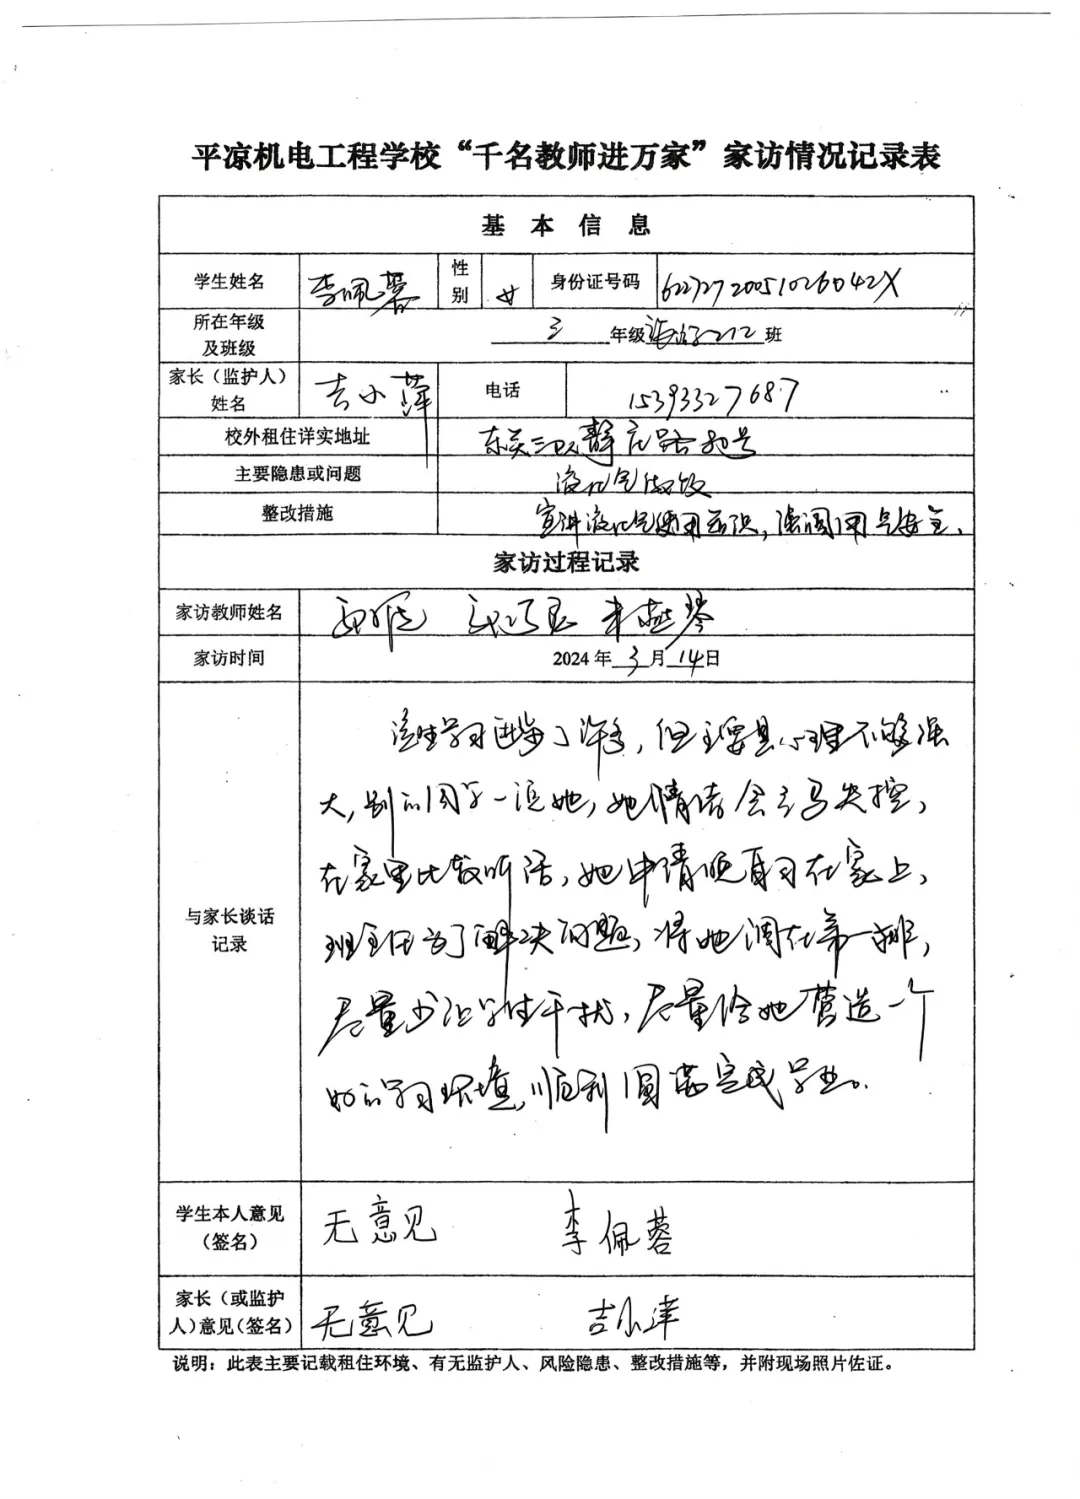 平凉机电工程学校“千名教师进万家”家访情况记录表
基本信息
学生姓名 李佩蓉 性别 女 身份证号码 62272720051026042X
所在年级及班级 三 年级 212 班
家长（监护人）姓名 吉小萍 电话 15393327687
校外租住详实地址 东关三队静庄路 号
主要隐患或问题 液化气做饭
整改措施 宣讲液化气使用知识，强调用气安全.
家访过程记录
家访教师姓名 朱燕琴
家访时间 2024年3月14日
与家长谈话记录
该生学习进步了许多，但主要是心理不够强
大，别的同学一逗她，她情绪会立马失控，
在家里比较听话，她申请晚自习在家上，
班主任为了解决问题，将她调在第一排，
尽量少让学生干扰，尽量给她营造一个
好的学习环境，顺利圆满完成学业。
学生本人意见（签名） 无意见 李佩蓉
家长（或监护人）意见（签名） 无意见 吉小萍
说明：此表主要记载租住环境、有无监护人、风险隐患、整改措施等，并附现场照片佐证。